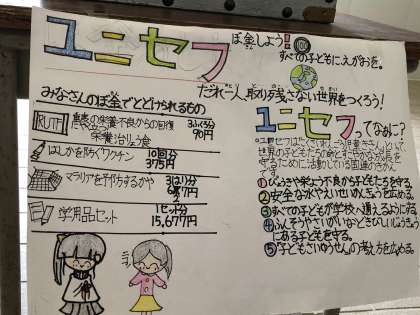 ユニセフ
ぼ金しよう!
すべての子どもにえがおを。
だれ一人、取り残さない世界をつくろう!
みなさんのぼ金でとどけられるもの
RUTF
重度の栄養不良からの回復
栄養治りょう食
3ぶくろ分
90円
はしかを防ぐワクチン
10回分
375円
マラリアを予防するかや
3はり分
学用品セット
1セット分
15,677円
ユニセフってなあに?
世界の子どもたちの命と
守るために活動している国連のきかん
です。
①びょうきや栄よう不良から子どもたちを守る。
②安全な水やえいせいめんを広める。
③すべての子どもが学校へ通えるようにする。
④ふんそうやさいがいなどきびしいじょうきょう
にある子どもを守る。
⑤「子どもさいゆうせん」の考え方を広める。